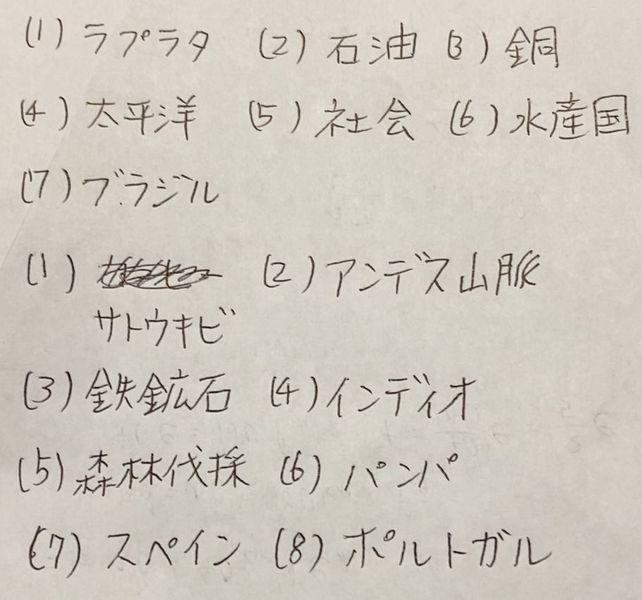 (1) ラプラタ (2) 石油 (3) 銅
(4) 太平洋 (5) 社会 (6) 水産国
(7) ブラジル
(1) (2) アンデス山脈
サトウキビ
(3) 鉄鉱石 (4) インディオ
(5) 森林伐採 (6) パンパ
(7) スペイン (8) ポルトガル